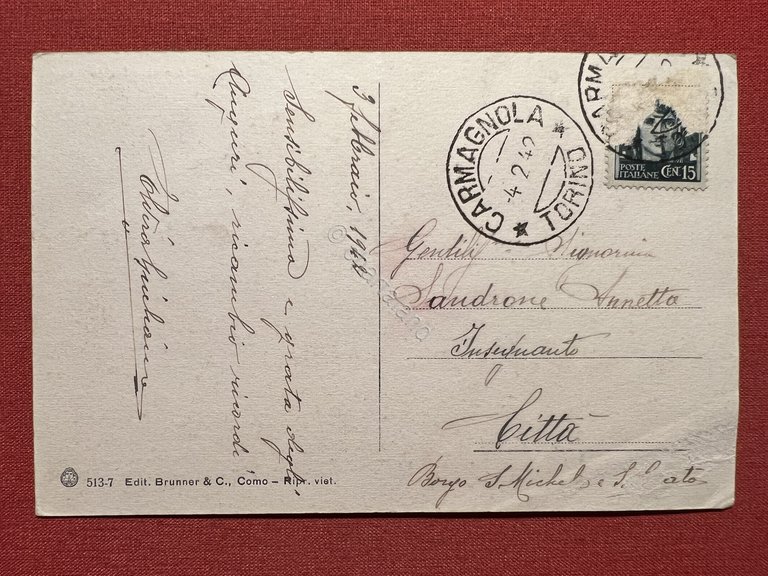 3 febbraio, 1942
Sensibilissima e grata degli
Auguri, ricambio ricordi
CARMAGNOLA
TORINO
-4.2.42
CARM
POSTE
ITALIANE
CENT. 15
Gentilis Signorina
Sandrone Annetta
Insegnante
Città
Borgo S. Michele e S.
513-7 Edit. Brunner & C., Como – Ripr. viet.